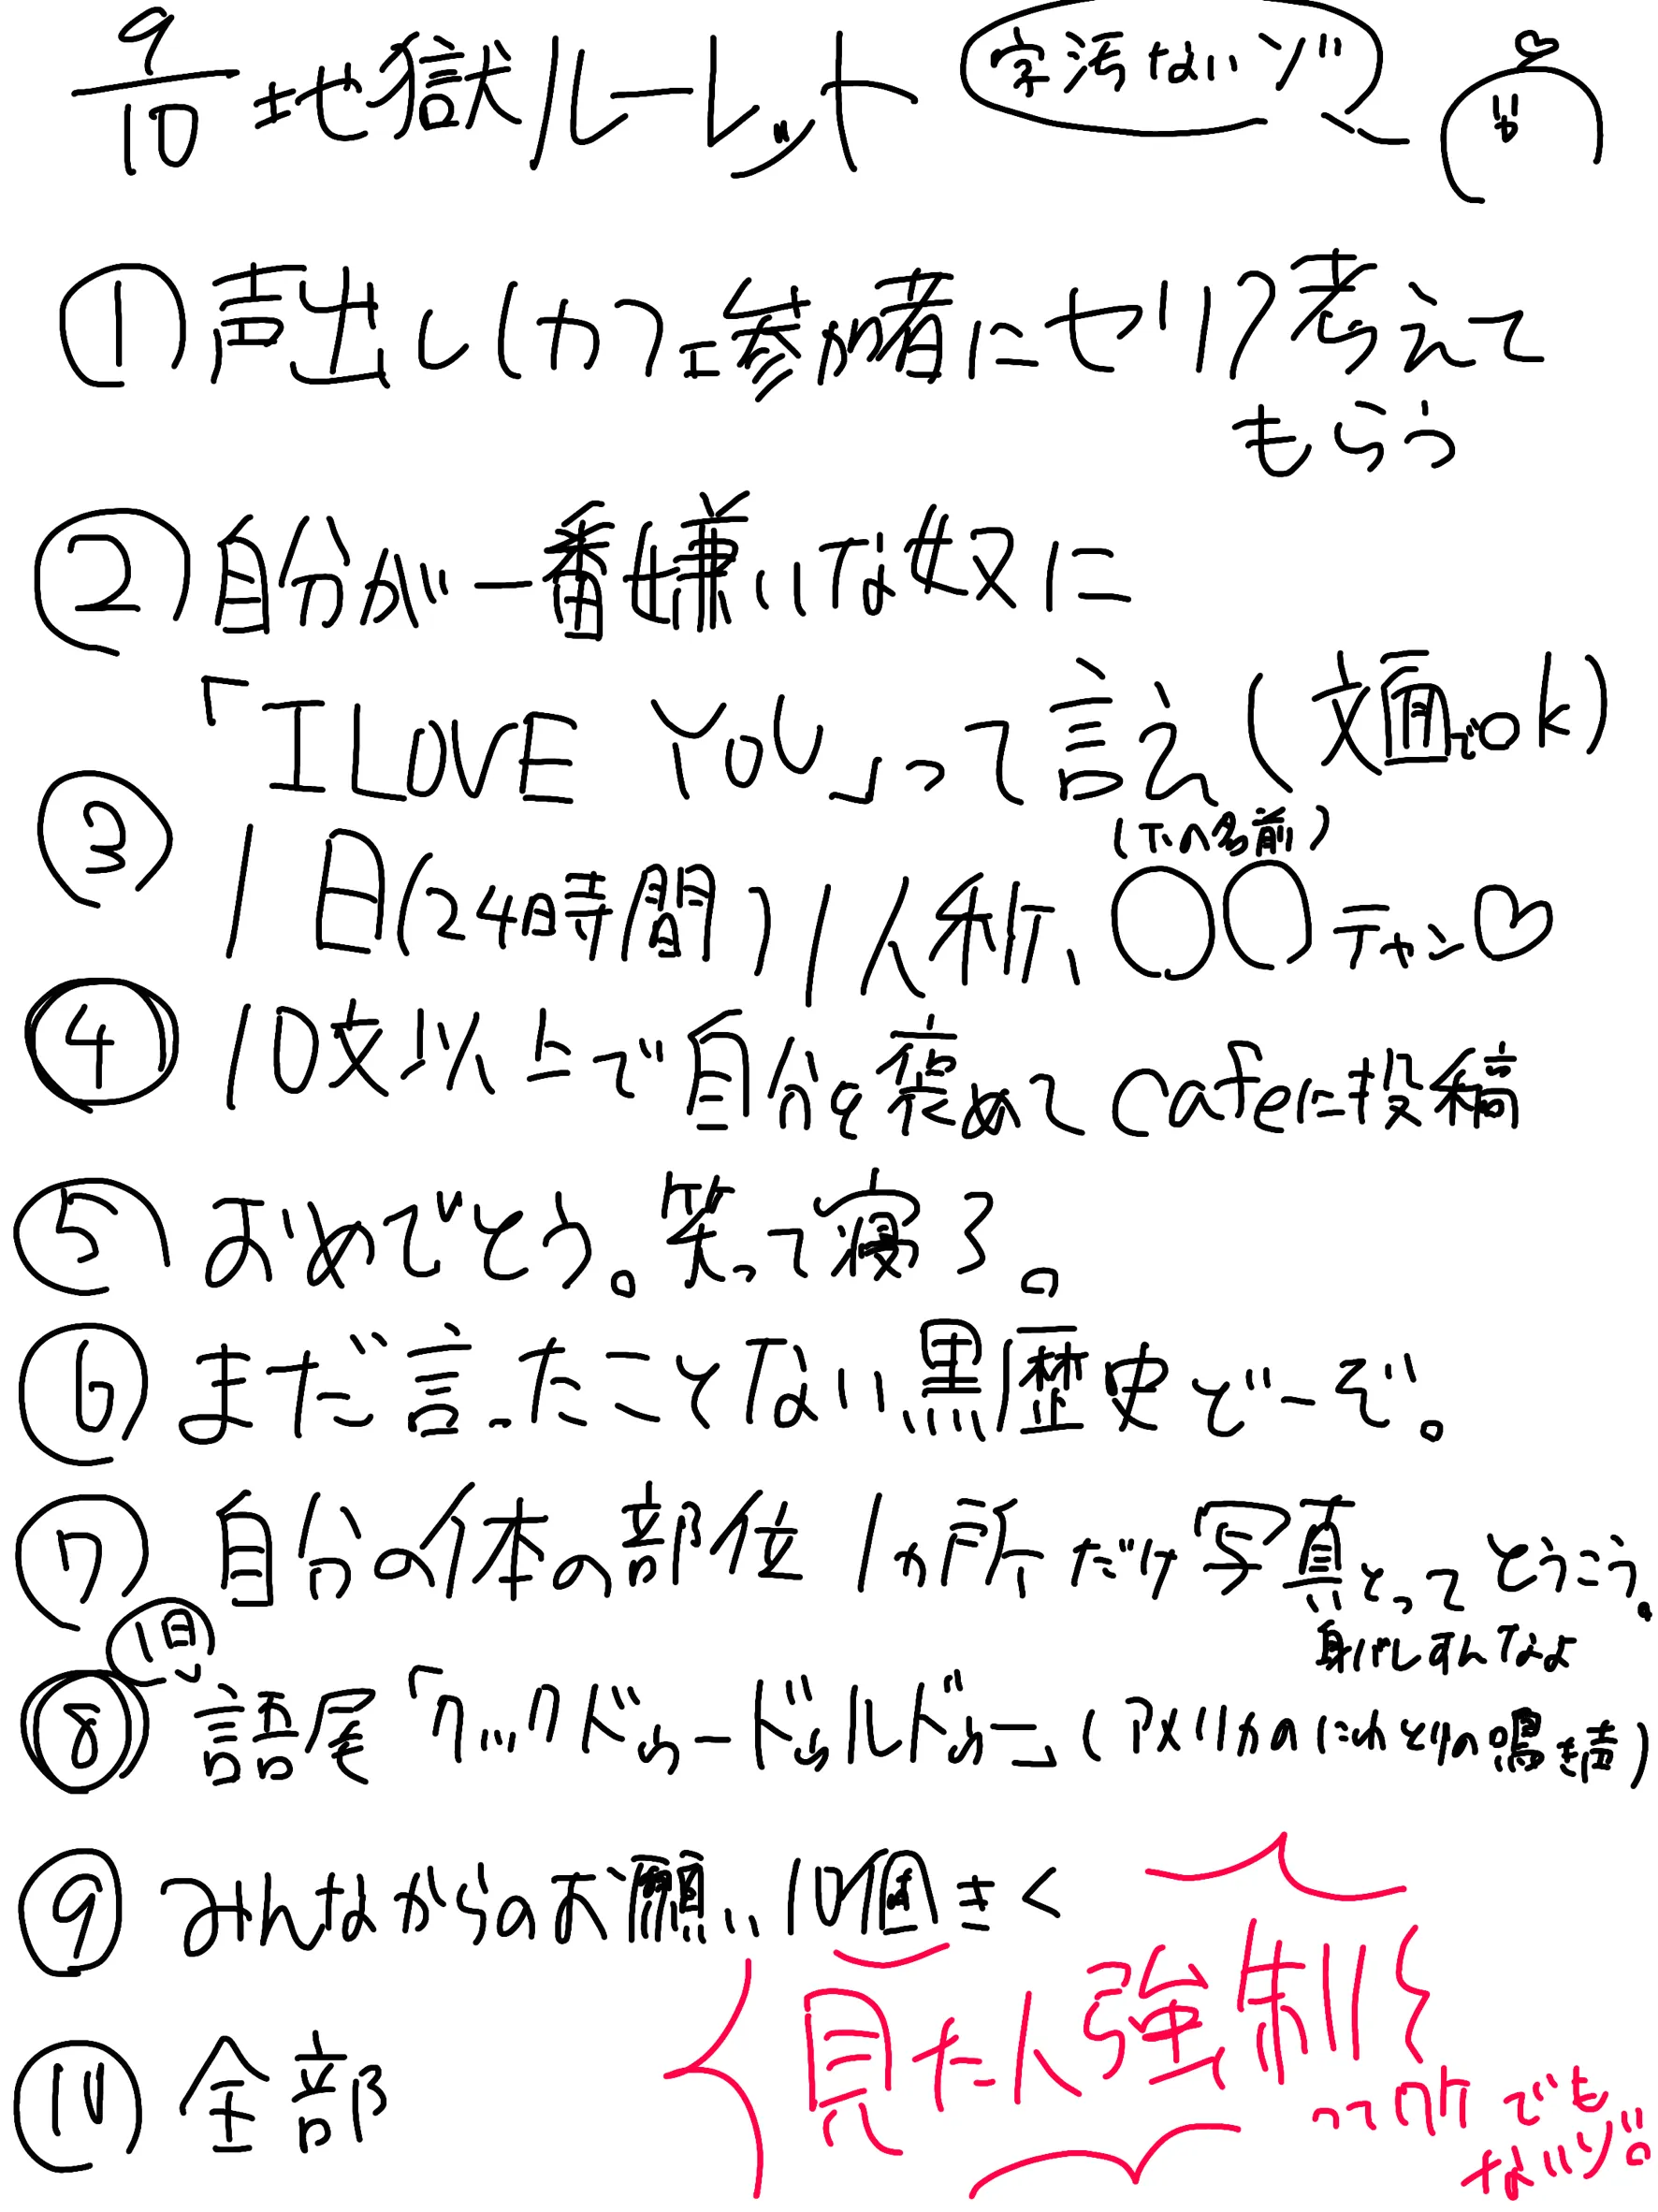 9/10 地獄ルーレット 字汚ないゾ
①声出しカフェ参加者にセリフ考えて
もらう
②自分が一番嫌いな奴に
「I LOVE YOU」って言え(文面でok)
(下の名前)
③1日(24時間)1人称、〇〇チャン♡
④10文以上で自分を褒めてcafeに投稿
⑤おめでとう。笑って寝ろ。
⑥まだ言ったことない黒歴史どーぞ。
⑦自分の体の部位1ヵ所だけ写真とってとうこう。
身バレすんなよ
1日
⑧語尾「クックドゥードゥルドゥー」(アメリカのにわとりの鳴き声)
⑨みんなからのお願い10個きく
見た人強制
ってわけでも
ないゾ!!
⑩全部